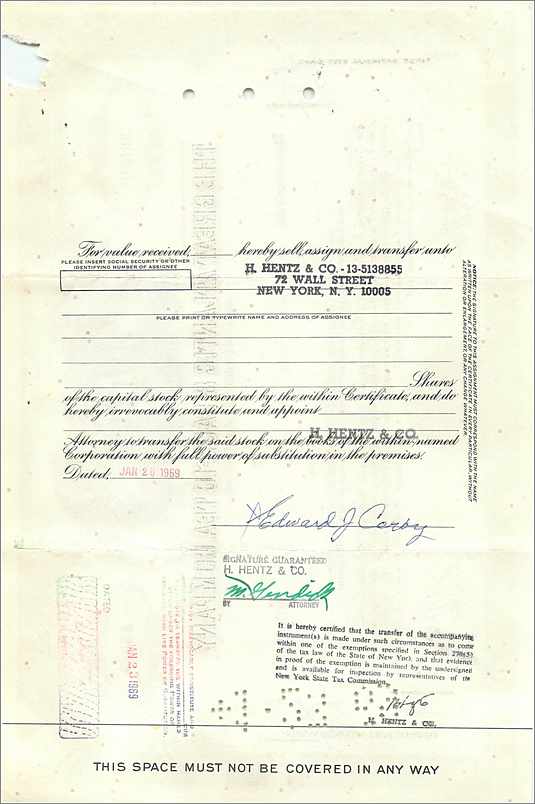 For value received, hereby sell, assign and transfer unto
PLEASE INSERT SOCIAL SECURITY OR OTHER
IDENTIFYING NUMBER OF ASSIGNEE
H. HENTZ & CO. - 13-5138855
72 WALL STREET
NEW YORK, N. Y. 10005
PLEASE PRINT OR TYPEWRITE NAME AND ADDRESS OF ASSIGNEE
Shares
of the capital stock represented by the within Certificate, and do
hereby irrevocably constitute and appoint
H. HENTZ & CO.
Attorney to transfer the said stock on the books of the within named
Corporation with full power of substitution in the premises.
Dated, JAN 20 1969
NOTICE: THE SIGNATURE TO THIS ASSIGNMENT MUST CORRESPOND WITH THE NAME
AS WRITTEN UPON THE FACE OF THE CERTIFICATE IN EVERY PARTICULAR, WITHOUT
ALTERATION OR ENLARGEMENT, OR ANY CHANGE WHATEVER.
Edward J Corby
SIGNATURE GUARANTEED
H. HENTZ & CO.
BY ATTORNEY
JAN 23 1969
It is hereby certified that the transfer of the accompanying
instrument(s) is made under such circumstances as to come
within one of the exemptions specified in Section 270(5)
of the tax law of the State of New York, and that evidence
in proof of the exemption is maintained by the undersigned
and is available for inspection by representatives of the
New York State Tax Commission.
H. HENTZ & CO.
THIS SPACE MUST NOT BE COVERED IN ANY WAY